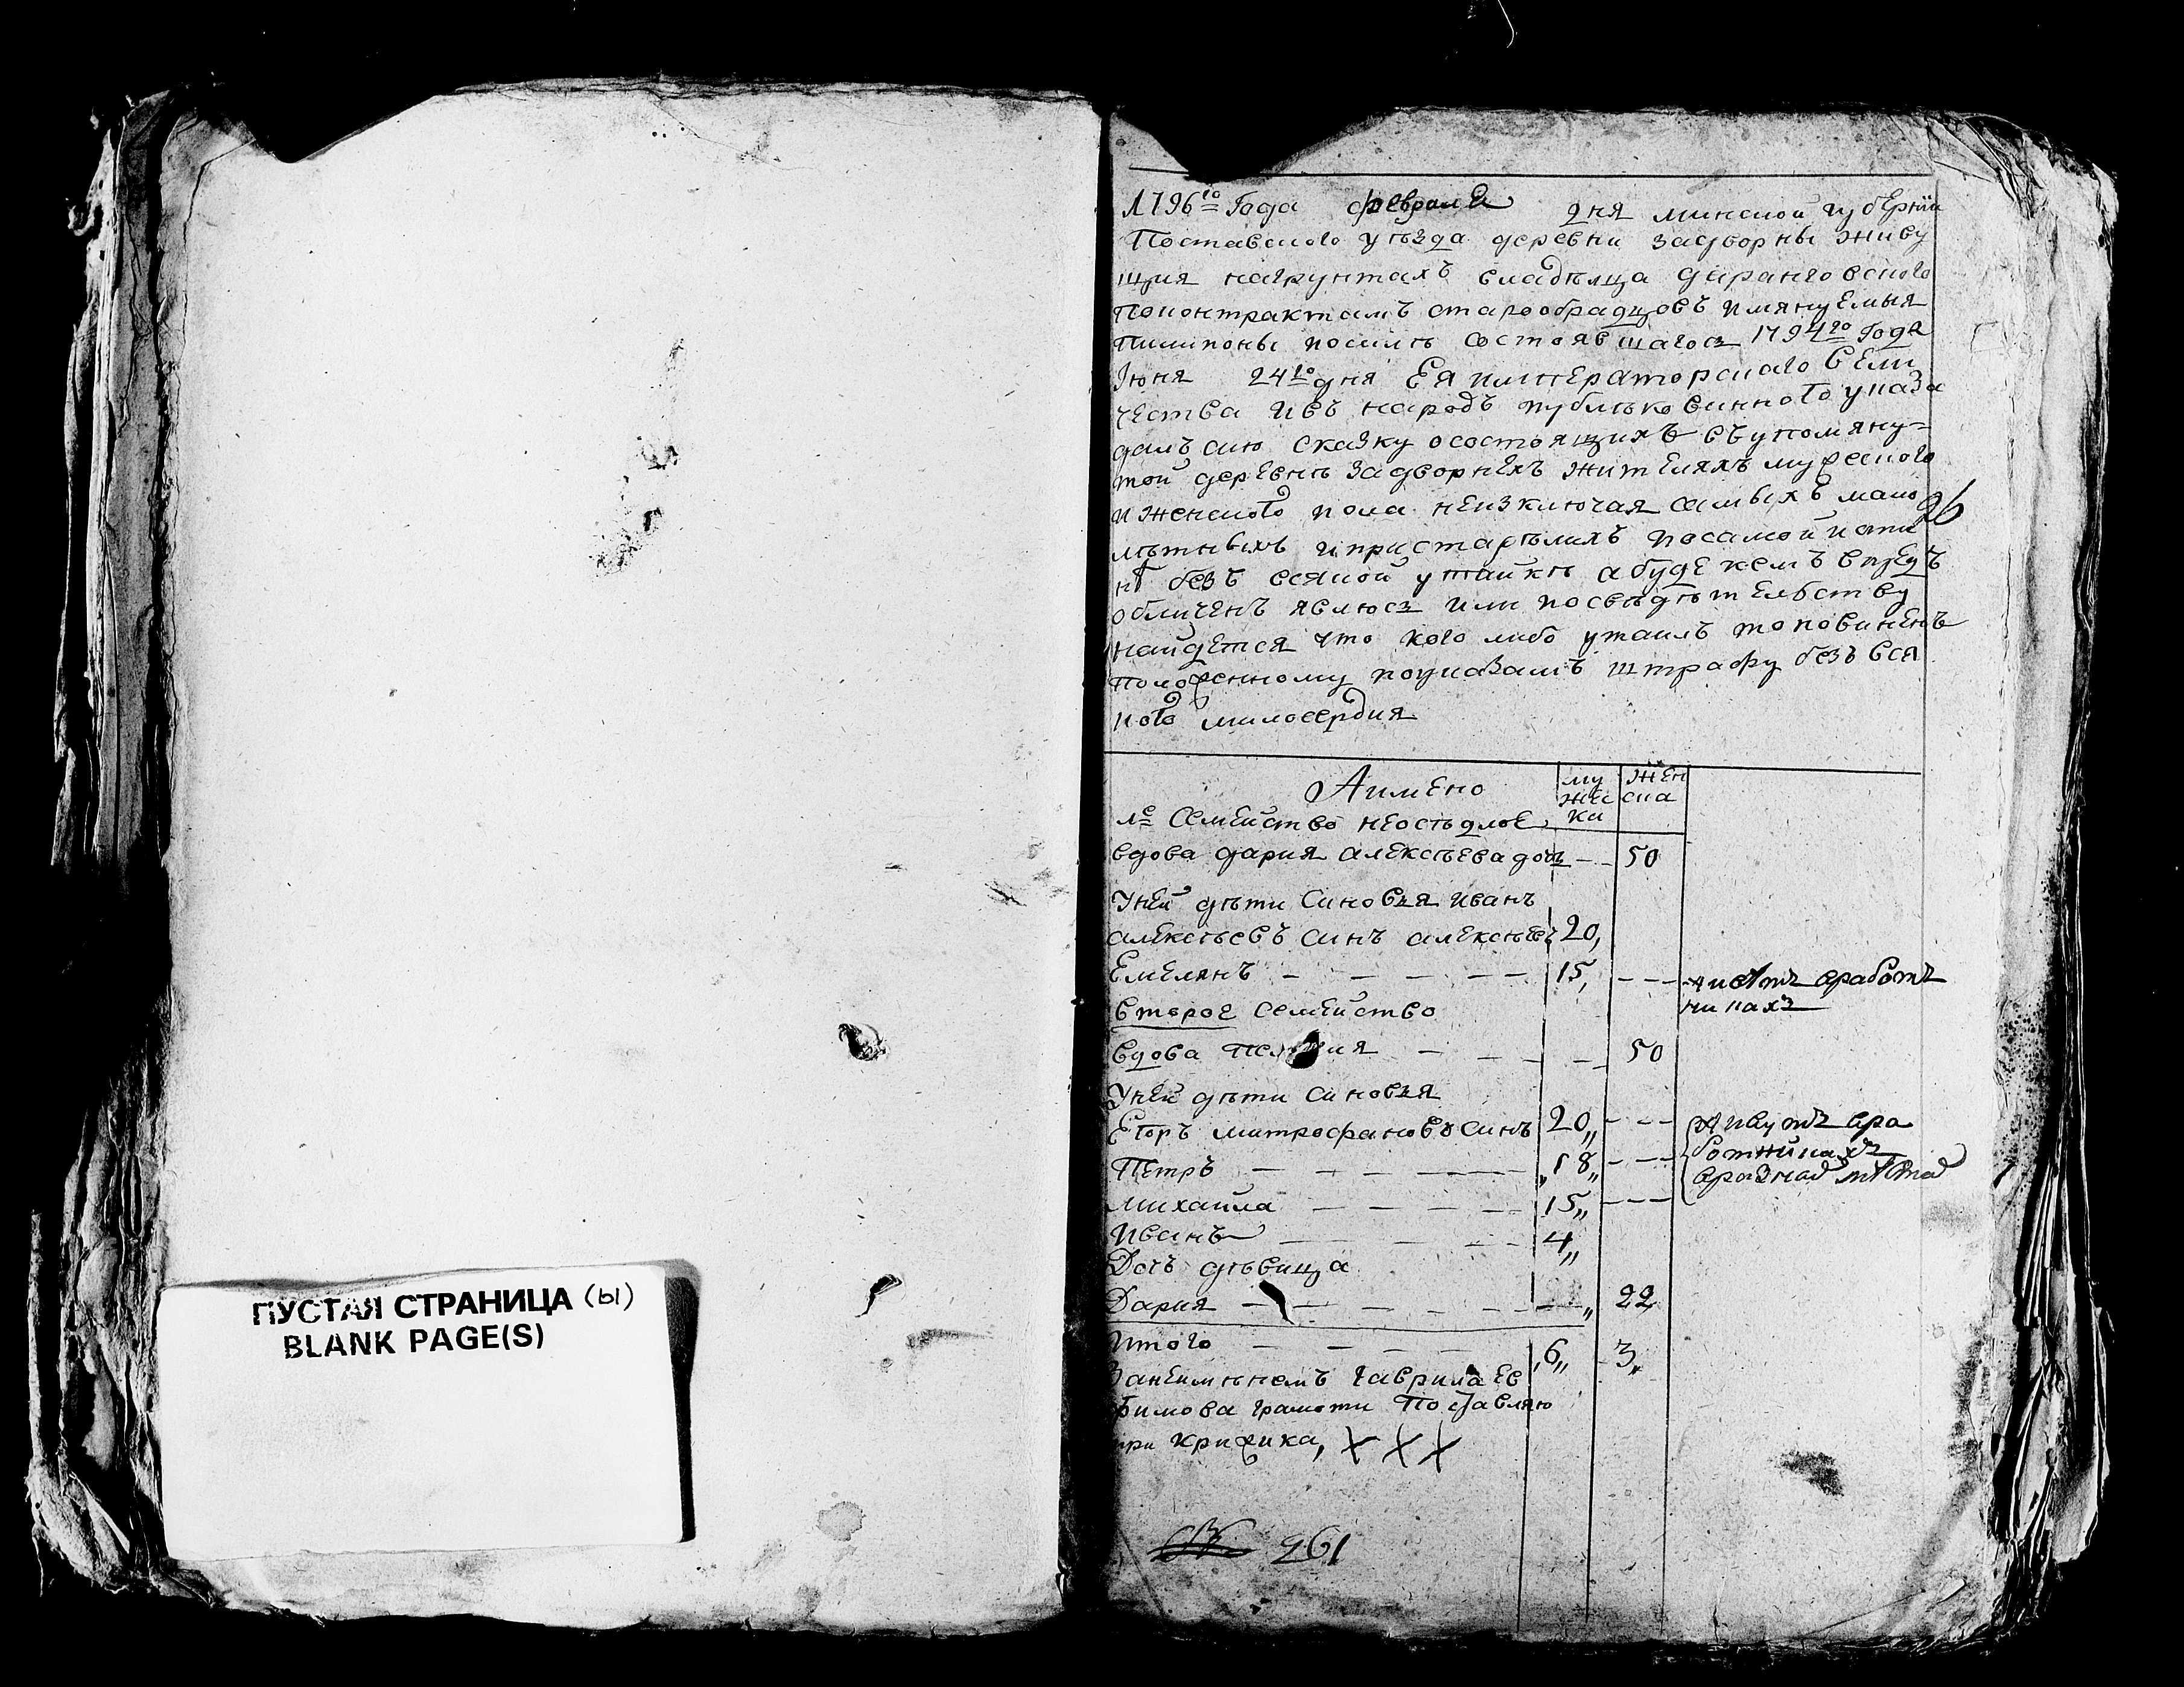 ПУСТАЯ СТРАНИЦА (ы)
BLANK PAGE(S)
1796го Года февраля дня минской губернии
Поставского уѣзда деревни задворны живу
щия нагрунтахъ владѣлца
поконтрактамъ старообрядцовъ имянуемыя
пилипоны посилѣ состоявшагося 1794го Года
Іюня 24го дня Ея императорскаго Вели
чества ивъ народъ публикованного указа
далъ сию сказку осостоящихъ въупомяну-
той деревнѣ задворнехъ жителяхъ мужеского
иженского пола неизключая самыхъ мало
26
лѣтныхъ ипристарѣлихъ посамой исти
нѣ безъ всякой утайки абуде кемъ впредъ
обличенъ явлюсъ или посвѣдѣтельству
найдется что кого либо утаилъ то повиненъ
положенному поуказамъ штрафу безъ вся
кого милосердия
Аимено
му жес ка
жен ска
1е Семейство неосѣдлое
вдова дария алексѣева дочь - - 50
Уней дѣти синовья иванъ
алексѣевъ синъ алексѣевъ 20,
Емелянъ - - - - - 15, - - - живѣтъ вработ
никахъ
второе семейство
вдова - - - - 50
Уней дѣти синовья
Егоръ митрофановъ синъ 20,, - - - живутъ вра
Петръ - - - - ,,18,, - - - ботникахъ
вразнах мѣстах
михайла - - - - - 15,, - - -
Иванъ - - - - 4,,
Дочь дѣвица
Дария - - - - - - ,, 22,
Итого - - - - ,6,, 3,,
Занеимѣнемъ гаврила Еѳ
фимова грамоти поставляю
три крижика, X X X
261